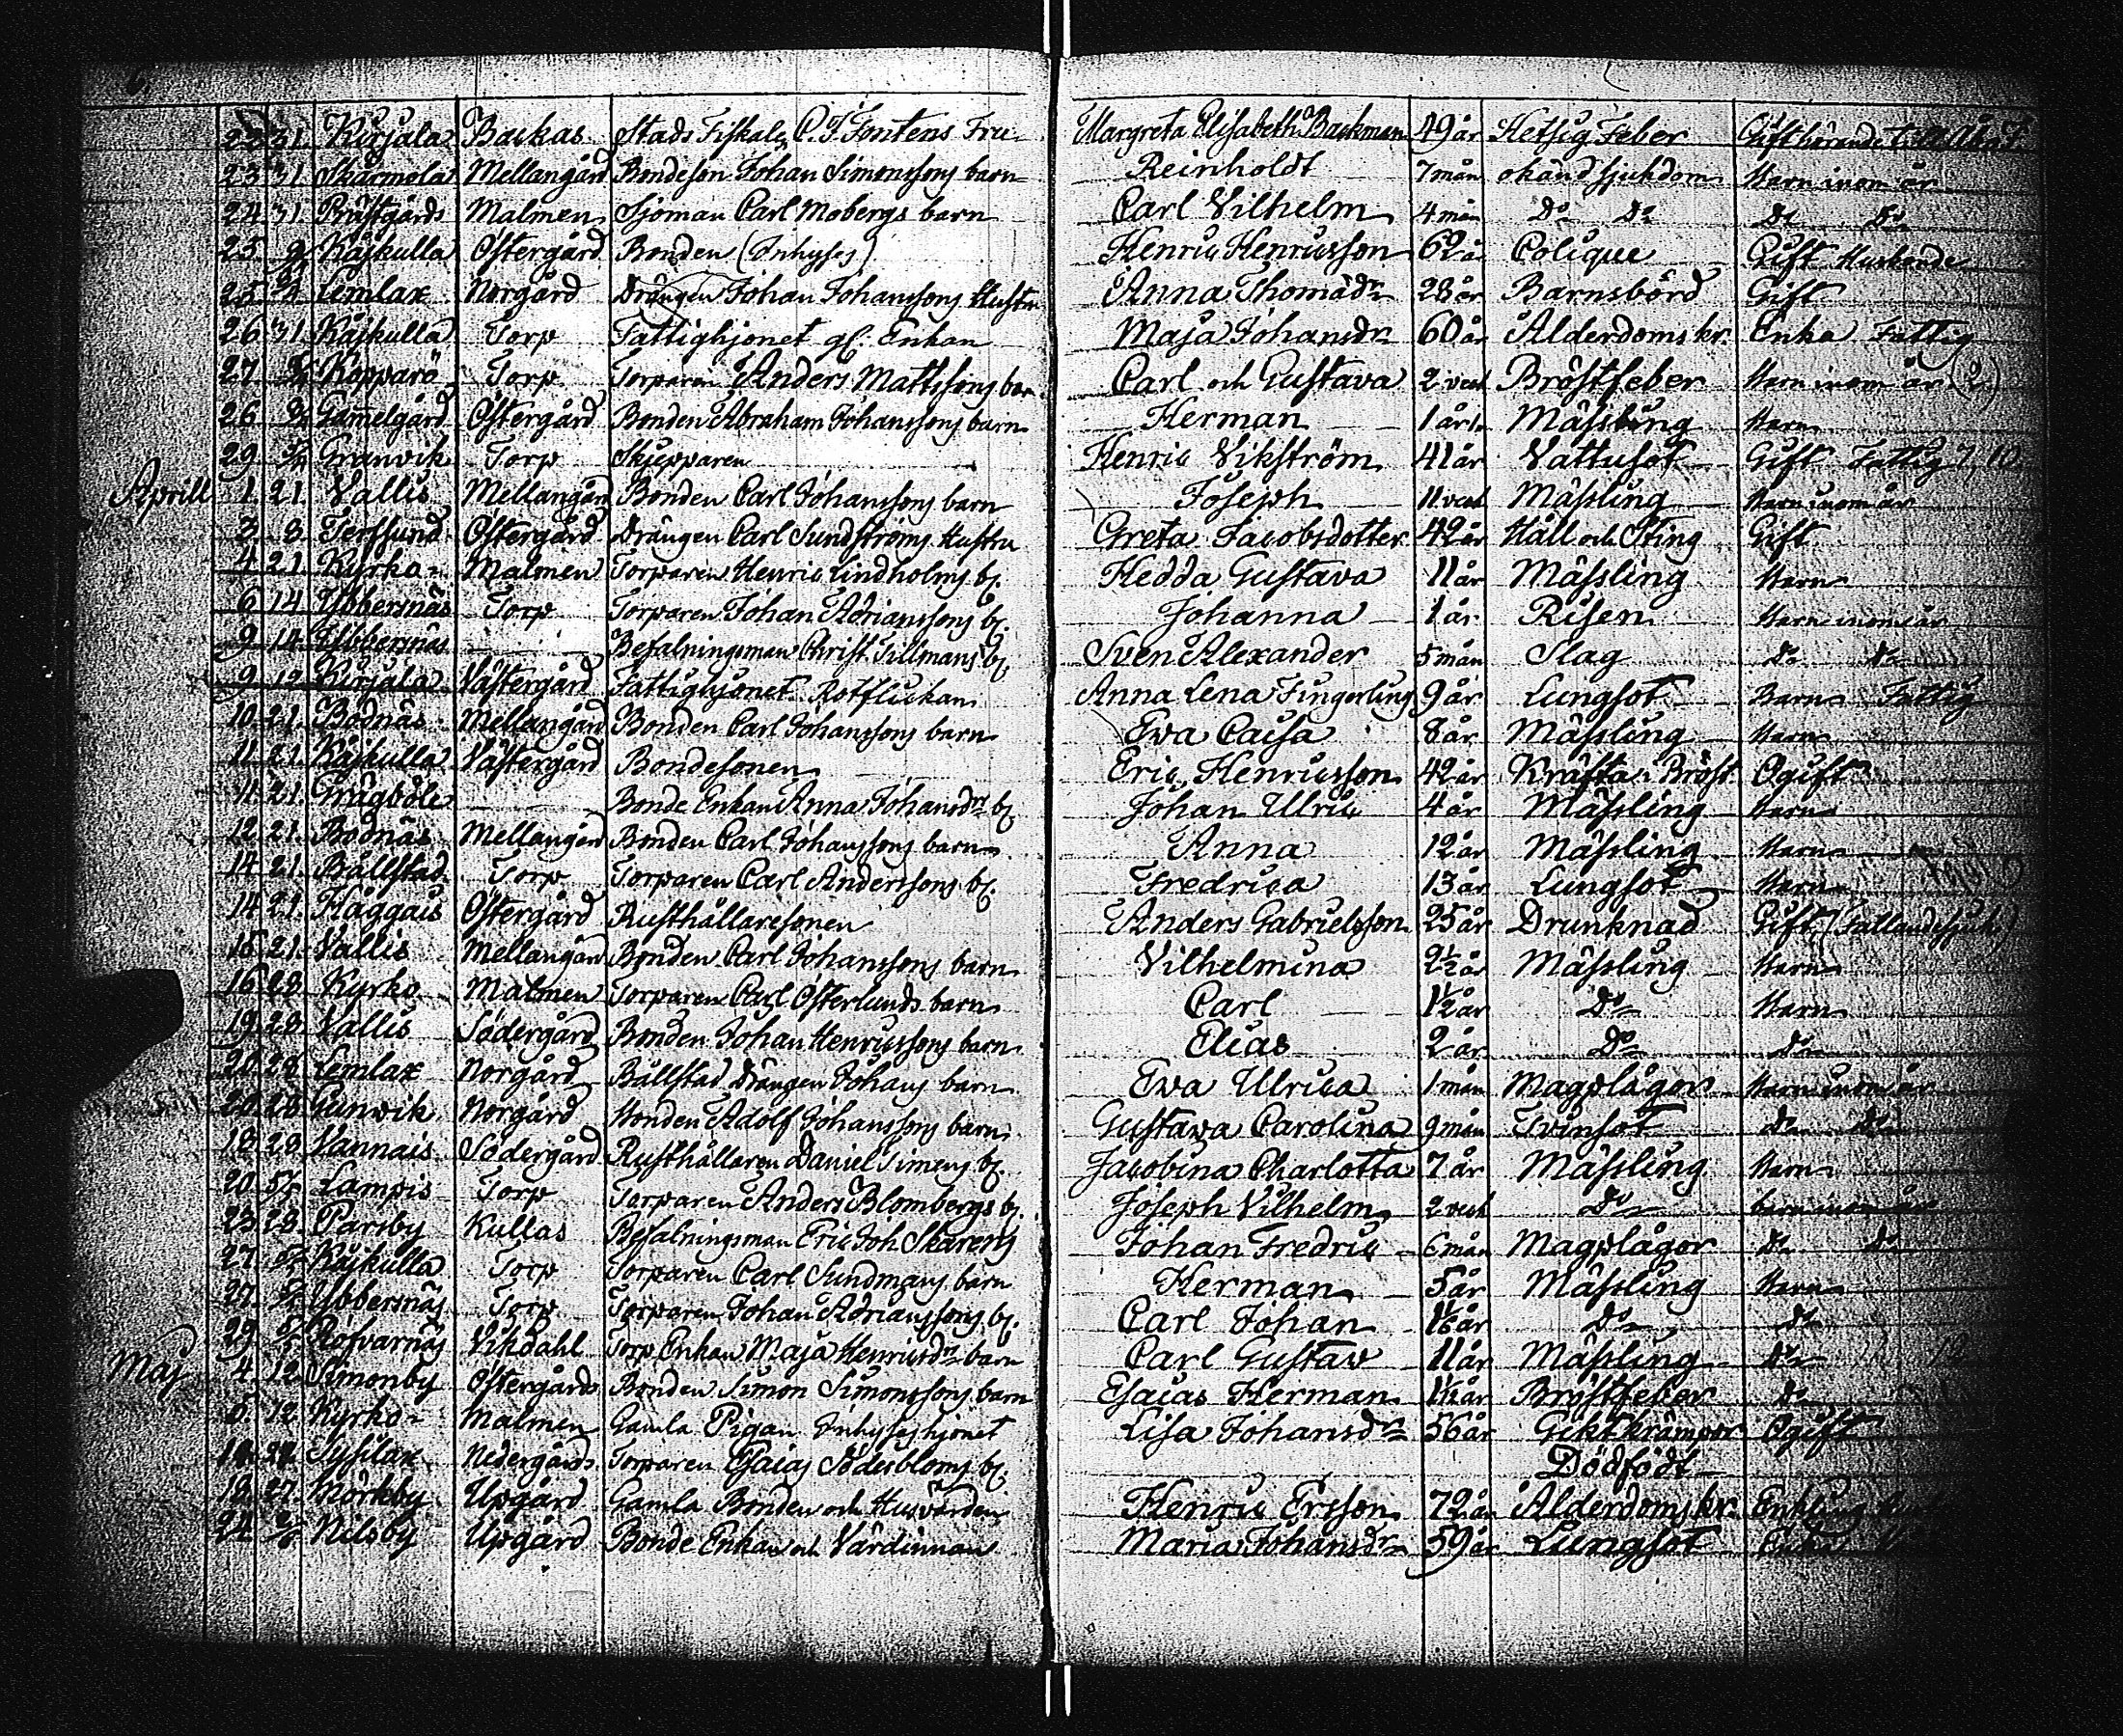 22 31. Kirjala Backas Stads Fiskalen C. F. Fontens Fru Margreta Elisabeth Backman 49 år Hetsig Feber Gift hörande till
23 31. Skärmola Mellangård Bondeson Johan Simonssons barn Reinholdt 7 mån okänd sjukdom Barn inom år
24 31. Prästgårds Malmen Sjöman Carl Mobergs barn Carl Vilhelm 4 mån Do Do Do Do
25. Kåjkulla Östergård Bonden (Inhyses) Henric Henricsson 62 år Colique Gift
25 Lemlax Norgård Drängen Johan Johanssons Hustru Anna Thomædr 28 år Barnsbörd Gift
26 31. Kåjkulla Torp Fattighjonet gl. Enkan Maja Johansdr 60 år Ålderdoms kr. Enka Fattig
27 Kopparö Torp Torparen Anders Mattssons bar Carl och Gustava 2 veck Bröstfeber Barn inom år (2)
26 Gamelgård Östergård Bonden Abraham Johanssons barn Herman 1 år Mässling Barn
29 Granvik Torp Skjepparen Henric Vikström 41 år Vattusot Gift Fattig
Aprill 1. 21. Vallis Mellangård Bonden Carl Johanssons barn Joseph 11 veck Mässling Barn inom år
3. 3. Terfsund Östergård Drängen Carl Sundströms Hustru Greta Jacobsdotter 42 år Håll och Sting Gift
4 21 Kyrko- Malmen Torparen Henric Lindholms b. Hedda Gustava 11 år Mässling Barn
6 14 Ybbersnäs Torp Torparen Johan Adrianssons b. Johanna 1 år Risen Barn inom år
9 14 Ybbersnäs Befalningsman Christ. Tillmans b. Sven Alexander 5 mån Slag Do Do
9 12 Kirjala Västergård Fattighjonet Rotflickan Anna Lena Fingerling 9 år Lungsot Barn Fattig
10. 21. Bodnäs Mellangård Bonden Carl Johanssons barn Eva Caisa 8 år Mässling Barn
11. 21. Kåjkulla Västergård Bondesonen Eric Henricsson 42 år Kräfta i Bröst. Ogift
11. 21. Gråggböle Bonde Enkan Anna Johansdrs b. Johan Ulric 4 år Mässling Barn
12 21. Bodnäs Mellangård Bonden Carl Johanssons barn Anna 12 år Mässling Barn
14 21. Bällstad Torp Torparen Carl Anderssons b. Fredrica 13 år Lungsot Barn
14 21. Häggais Östergård Rusthållaresonen Anders Gabrielsson 25 år Drunknad Gift (Fallandesjuk)
15 21. Vallis Mellangård Bonden Carl Johanssons barn Vilhelmina 2½ år Mässling Barn
16 28 Kyrko Malmen Torparen Carl Österlunds barn Carl 1½ år Do Barn
19. 28. Vallis Södergård Bonden Johan Henricssons barn Elias 2 år Do Do
20. 28 Lemlax Norgård Bällstad Drängen Johans barn Eva Ulrica 1 mån Magplågor Barn inom år
20. 28 Gunvik Norgård Bonden Adolf Johanssons barn Gustava Carolina 9 mån Tvinsot Do Do
18 28 Vannais Södergård Rusthållaren Daniel Simens b. Jacobina Charlotta 7 år Mässling Barn
20. Lampis Torp Torparen Anders Blombergs b. Joseph Vilhelm 2 veck Do barn inom år
23 28. Parsby Kullas Befalningsman Eric Joh Skarens Johan Fredric 6 mån Magplågor Do Do
27. Kåjkulla Torp Torparen Carl Sundmans barn Herman 5 år Mässling Barn
27. Ybbersnäs Torp Torparen Johan Adrianssons b. Carl Johan år Do Do
29 Röfvarnäs Vikdahl Torp Enkan Maja Henricsdrs barn Carl Gustav 11 år Mässling Do
Maj 4. 12 Simonby Östergårds Bonden Simon Simonssons barn Esaias Herman 1½ år Bröstfeber Do
5. 12 Kyrko- Malmen Gamla Pigan Inhyseshjonet Lisa Johansdr 56 år Gicktkrämpor Ogift
Sysilax Nedergårds Torparen Esaias Söderbloms b. Dödfödt
18. 27. Mörkby Upgård Gamla Bonden och Husvärden Henric Ersson 72 år Ålderdoms kr. Enkling
24 Nilsby Upgård Bonde Enkan och Värdinnan Maria Johansdr 59 år Lungsot Enka